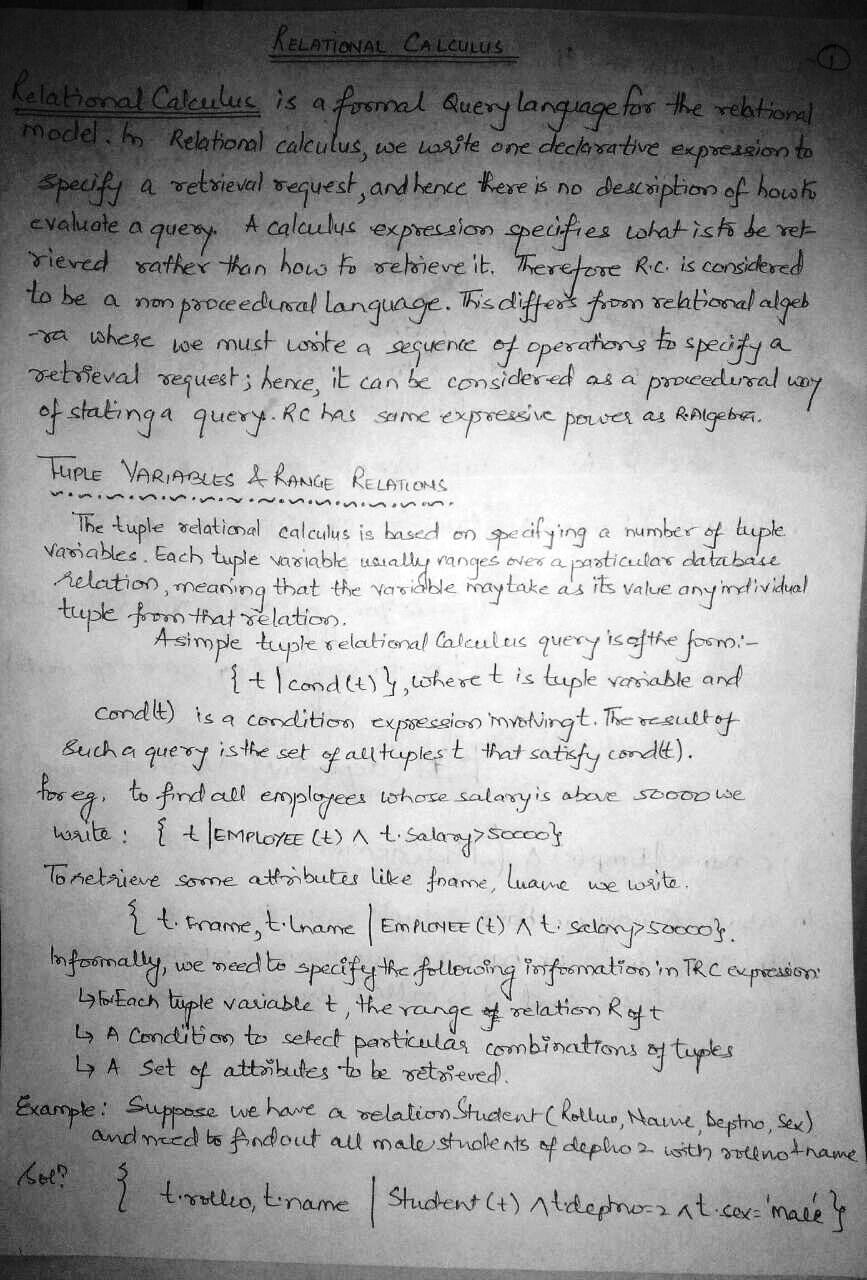 RELATIONAL CALCULUS
1
Relational Calculus is a formal Query language for the relational
model. In Relational calculus, we write one declarative expression to
specify a retrieval request, and hence there is no description of how to
evaluate a query. A calculus expression specifies what is to be ret-
rieved rather than how to retrieve it. Therefore R.C. is considered
to be a non proceedural language. This differs from relational algeb
-ra where we must write a sequence of operations to specify a
retrieval request; hence, it can be considered as a proceedural way
of stating a query. RC has same expressive power as R.Algebra.
TUPLE VARIABLES & RANGE RELATIONS
The tuple relational calculus is based on specifying a number of tuple
variables. Each tuple variable usually ranges over a particular database
relation, meaning that the variable may take as its value any individual
tuple from that relation.
A simple tuple relational Calculus query is of the form:-
{ t | cond(t) }, where t is tuple variable and
cond(t) is a condition expression involving t. The result of
Such a query is the set of all tuples t that satisfy cond(t).
for eg, to find all employees whose salary is above 50000 we
write : { t | EMPLOYEE (t) ∧ t.Salary>50000}
To retrieve some attributes like fname, lname we write.
{ t.Fname, t.Lname | EMPLOYEE (t) ∧ t.salary>50000}.
Informally, we need to specify the following information in TRC expression:
↳ for Each tuple variable t, the range relation R of t
↳ A Condition to select particular combinations of tuples
↳ A Set of attributes to be retrieved.
Example: Suppose we have a relation Student (Rollno, Name, Deptno, Sex)
and need to find out all male students of deptno 2 with rollno + name
Sol? { t.rollno, t.name | Student (t) ∧ t.deptno=2 ∧ t.sex='male' }